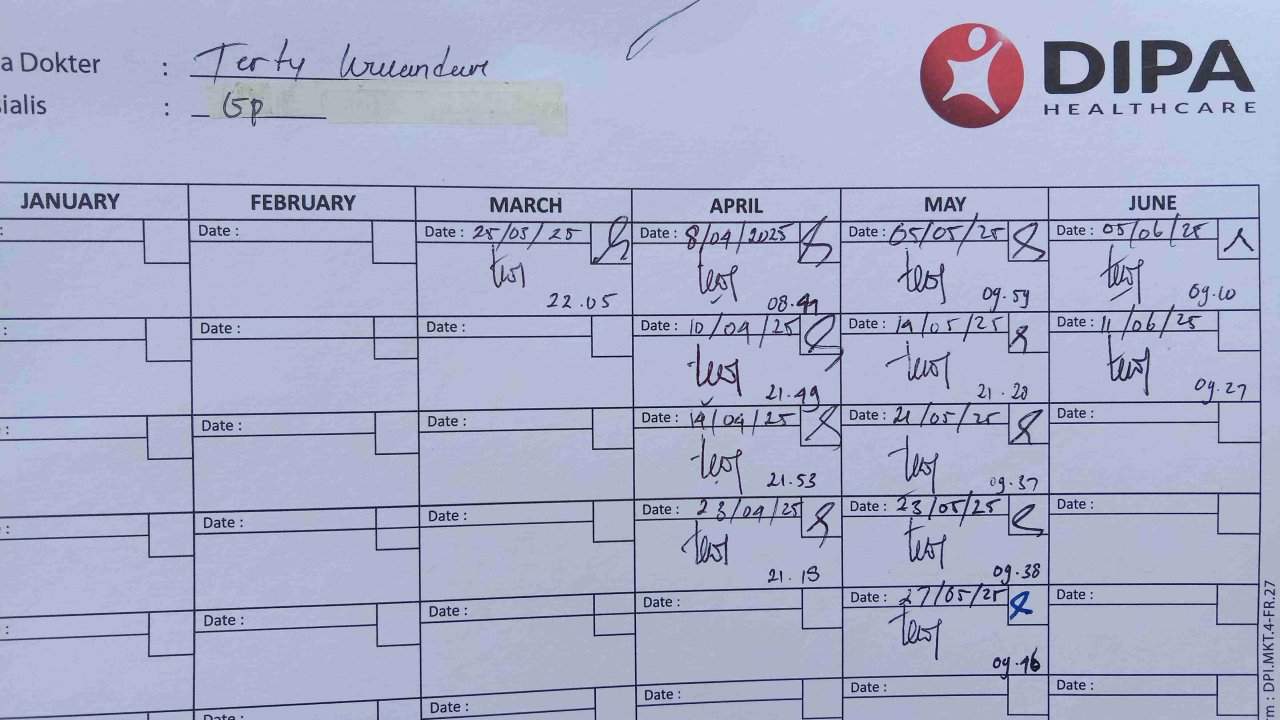 a Dokter : Terty
ialis : Gp
DIPA
HEALTHCARE
JANUARY FEBRUARY MARCH APRIL MAY JUNE
: Date : Date : 25/03/25 Date : 8/04/2025 Date : 05/05/25 Date : 05/06/25
22.05 08.41 09.59 09.10
: Date : Date : Date : 10/04/25 Date : 19/05/25 Date : 11/06/25
21.49 21.20 09.27
: Date : Date : Date : 14/04/25 Date : 21/05/25 Date :
21.53 09.37
: Date : Date : Date : 23/04/25 Date : 23/05/25 Date :
21.19 09.38
: Date : Date : Date : Date : 27/05/25 Date :
09.16
Date : Date : Date : Date : Date :
m : DPI.MKT.4-FR.27